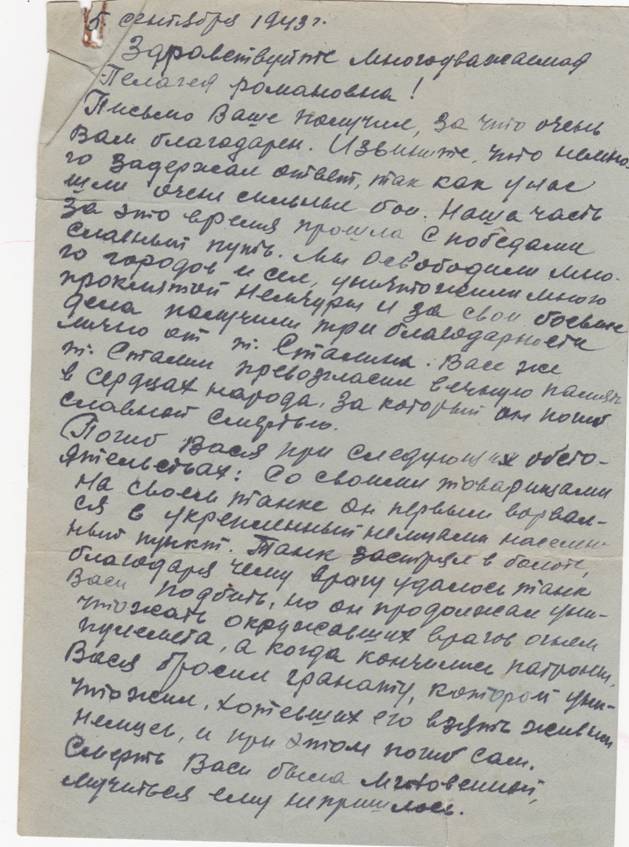 5 сентября 1943 г.
Здравствуйте многоуважаемая
Пелагея романовна!
Письмо Ваше получил, за что очень
Вам благодарен. Извините, что немно-
го задержал ответ, так как у нас
шли очень сильные бои. Наша часть
за это время прошла с победами
славный путь. Мы освободили мно-
го городов и сел, уничтожили много
проклятой немчуры и за свои боевые
дела получили три благодарности
лично от т. Сталина. Васе же
т. Сталин провозгласил вечную память
в сердцах народа, за который он погиб
славной смертью.
Погиб Вася при следующих обсто-
ятельствах: Со своими товарищами
на своем танке он первым ворвал-
ся в укрепленный немцами населен-
ный пункт. Танк застрял в болоте,
благодаря чему врагу удалось танк
Васи подбить, но он продолжал уни-
чтожать окружавших врагов огнем
пулемета, а когда кончились патроны,
Вася бросил гранату, которой уни-
чтожил, хотевших его взять живым
немцев, и при этом погиб сам.
Смерть Васи была мгновенной,
мучиться ему не пришлось.